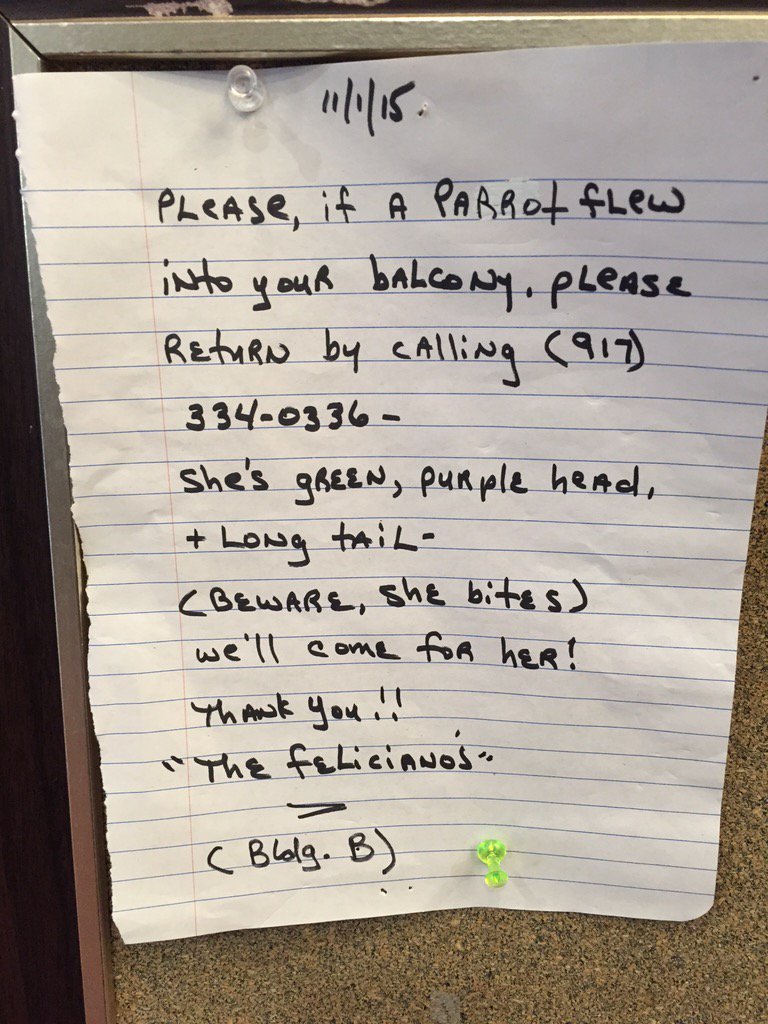 11/1/15.
PLEASE, if A PARROt fLEW
iNto youR bALCONY. pLEASE
REtuRN by CAlliNg (917)
334-0336-
She's gREEN, puRple heAd,
+ LONg tAiL-
(BEWARE, she bitES)
we'll come foR hER!
thANK you!!
"THE fELiCiANO'S"
(Bldg. B)